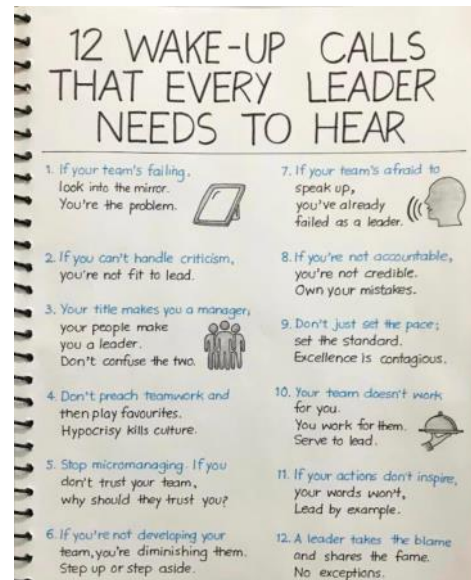 12 WAKE-UP CALLS
THAT EVERY LEADER
NEEDS TO HEAR
1. If your team's failing,
look into the mirror.
You're the problem.
2. If you can't handle criticism,
you're not fit to lead.
3. Your title makes you a manager,
your people make
you a leader.
Don't confuse the two.
4. Don't preach teamwork and
then play favourites.
Hypocrisy kills culture.
5. Stop micromanaging. If you
don't trust your team,
why should they trust you?
6. If you're not developing your
team, you're diminishing them.
Step up or step aside.
7. If your team's afraid to
speak up,
you've already
failed as a leader.
8. If you're not accountable,
you're not credible.
Own your mistakes.
9. Don't just set the pace;
set the standard.
Excellence is contagious.
10. Your team doesn't work
for you.
You work for them.
Serve to lead.
11. If your actions don't inspire,
your words won't,
Lead by example.
12. A leader takes the blame
and shares the fame.
No exceptions.